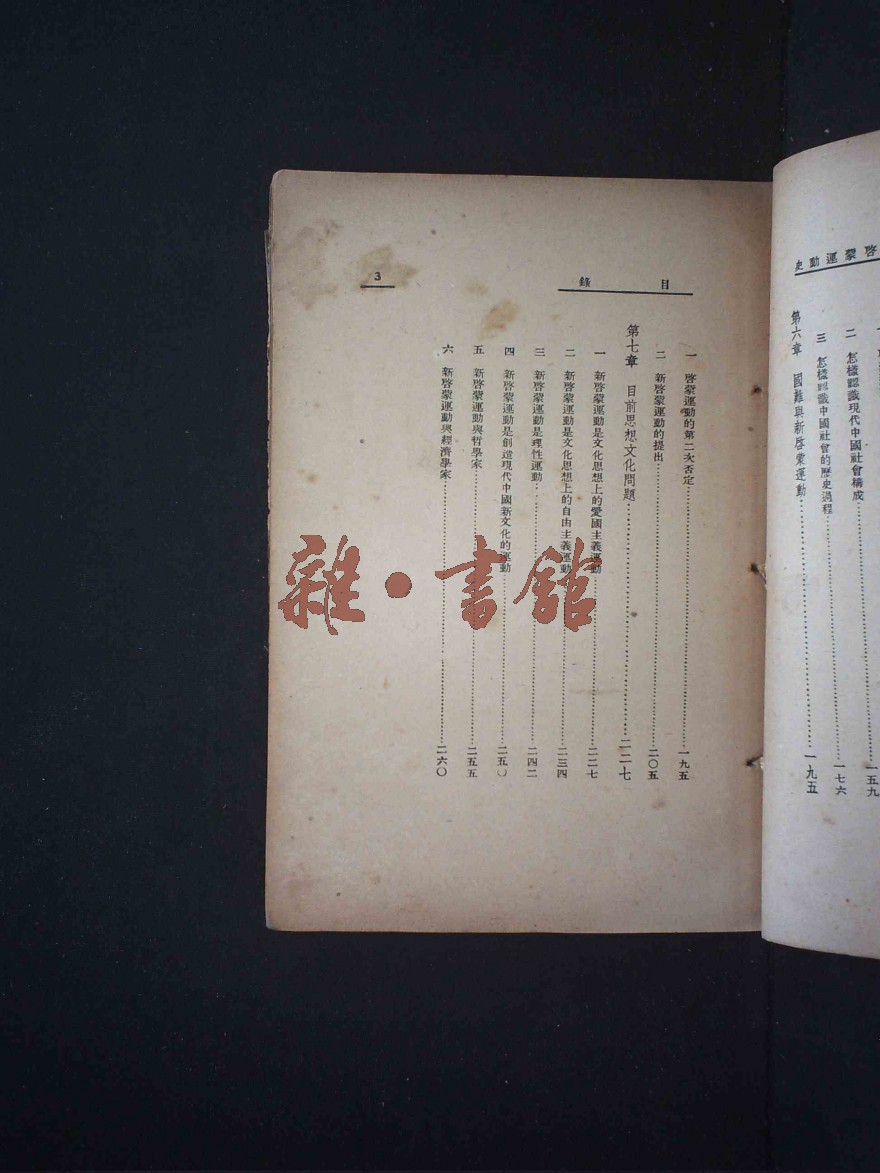 啓蒙運動史
一五九
二 怎樣認識現代中國社會構成
三 怎樣認識中國社會的歷史過程……一七六
第六章 國難與新啓蒙運動……一九五
目錄
一 啓蒙運動的第二次否定……一九五
二 新啓蒙運動的提出……二〇五
第七章 目前思想文化問題……二二七
一 新啓蒙運動是文化思想上的愛國主義運動……二二七
二 新啓蒙運動是文化思想上的自由主義運動……二三四
三 新啓蒙運動是理性運動……二四二
四 新啓蒙運動是創造現代中國新文化的運動……二五〇
五 新啓蒙運動與哲學家……二五五
六 新啓蒙運動與經濟學家……二六〇
3
雜·書館